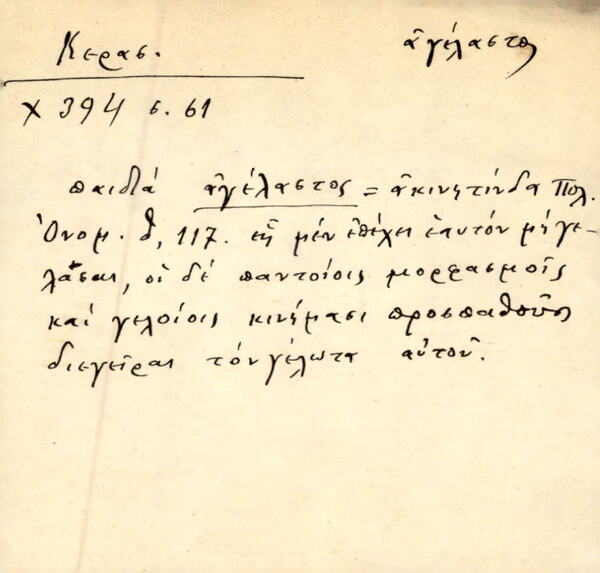 Κερασ. ἀγέλαστος
Χ 394 σ. 61
παιδιά ἀγέλαστος = ἀκινητίνδα Πολ.
Ὀνομ. θ, 117. εἷς μέν ἐπέχει ἑαυτόν μή γε-
λάσαι, οἱ δέ παντοίοις μορφασμοῖς
καί γελοίοις κινήμασι προσπαθοῦσι
διεγεῖραι τόν γέλωτα αὐτοῦ.